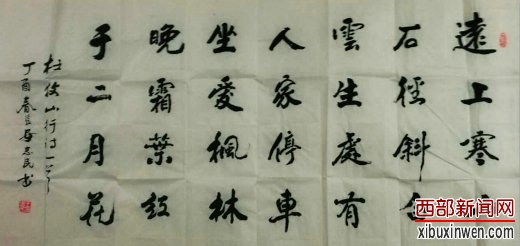 遠上寒
石徑斜白
雲生處有
人家停車
坐愛楓林
晚霜葉紅
于二月花
杜牧山行诗一首
丁酉春志民书
西部新闻网
xibuxinwen.com